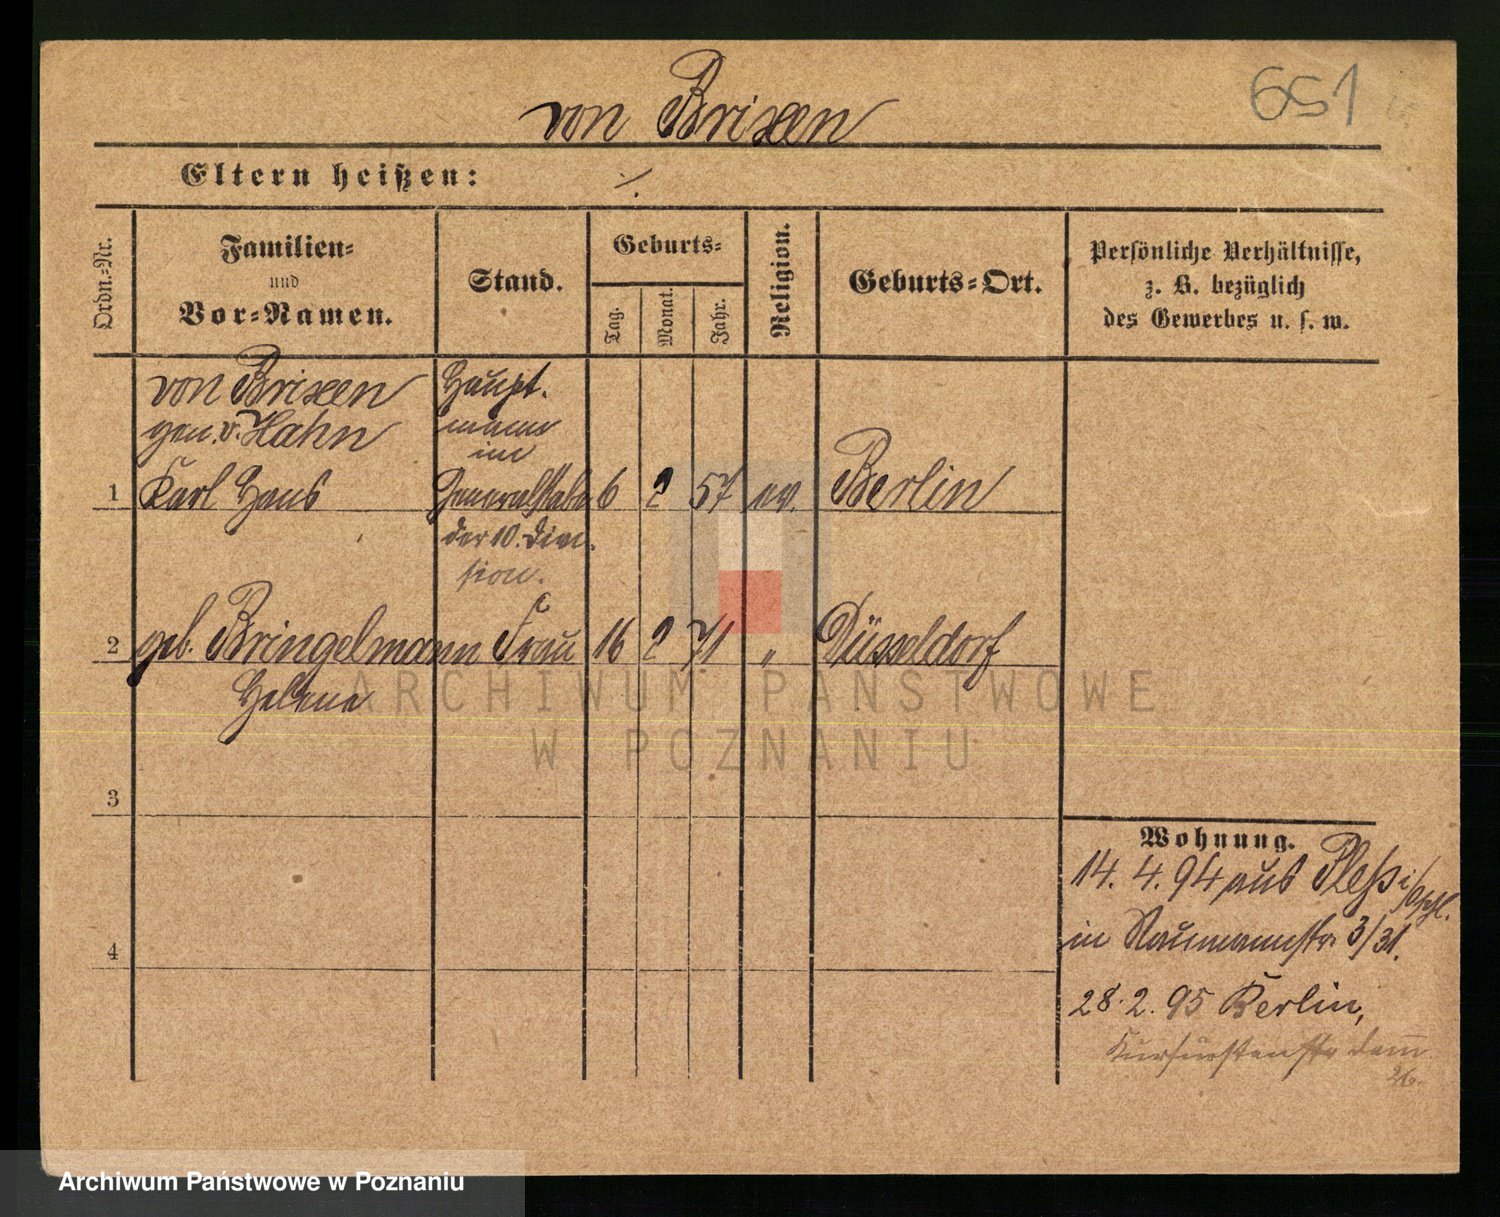 651
von Brixen
Eltern heißen: ⁒
Ordn.-Nr.
Familien-
und
Vor-Namen.
Stand.
Geburts-
Tag.
Monat.
Jahr.
Religion.
Geburts-Ort.
Persönliche Verhältnisse,
z. B. bezüglich
des Gewerbes u. s. w.
von Brixen
gen. v. Hahn
1 Karl Hans
Haupt-
mann
im
Generalstabe
der 10. Divi-
sion.
6 2 57 ev. Berlin
2 geb. Bringelmann Frau 16 2 71 " Düsseldorf
Helene
3
4
Wohnung.
14. 4. 94 aus Pleß i/
in Naumannstr. 3/31.
28. 2. 95 Berlin,
Kurfürstenstr damm
26.
ARCHIWUM PAŃSTWOWE
W POZNANIU
Archiwum Państwowe w Poznaniu